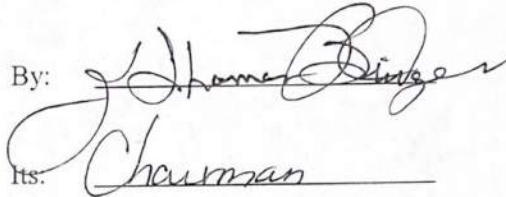 By: J. Thomas Binger
Its: Chairman